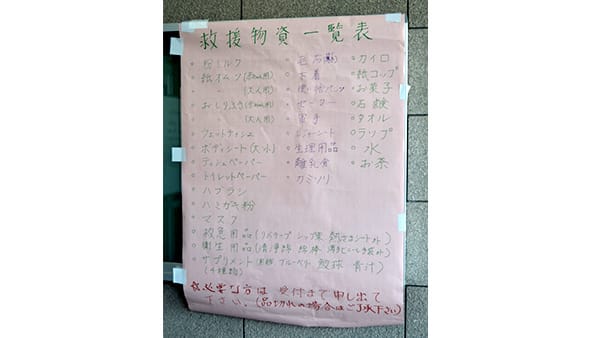 救援物資一覧表
・粉ミルク
・紙オムツ(赤ちゃん用)
(大人用)
・おしりふき(赤ちゃん用)
(大人用)
ウェットティシュ
・ボディシート(大・小)
・ティシュペーパー
・トイレットペーパー
・ハブラシ
・ハミガキ粉
・マスク
・救急用品(リバテープ シップ薬 熱さまシート
・衛生用品(清浄綿 綿棒
・サプリメント(黒酢 ブルーベリー 鮫珠 青汁)
(4種類)
・下着
・使い捨てパンツ
・セーター
・軍手
・レジャーシート
・生理用品
・離乳食
・カミソリ
・カイロ
・紙コップ
・お菓子
・石鹸
・タオル
・ラップ
・水
・お茶
☆必要な方は 受付まで申し出て
下さい。(品切れの場合はご了承下さい)